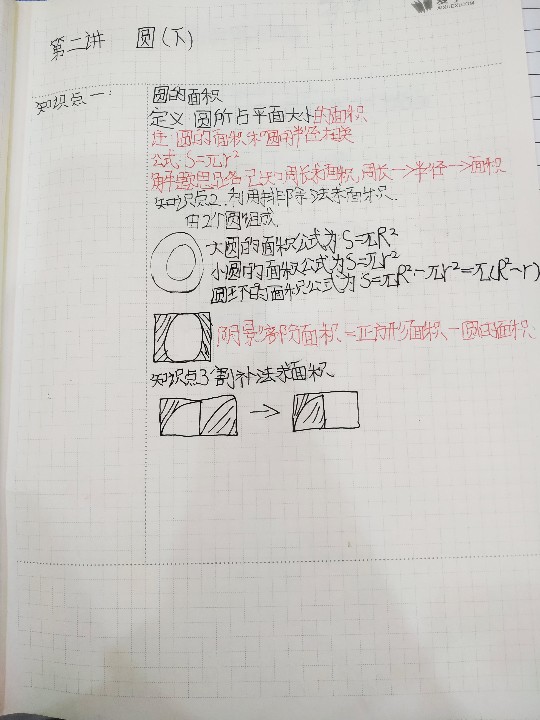 第二讲 圆(下)
知识点一:
圆的面积
定义 圆所占平面大小的面积
注 圆的面积和圆半径有关
公式 S=πr²
解题思路 已知周长求面积,周长→半径→面积
知识点2.利用排除法求面积.
由2个圆组成
大圆的面积公式为S=πR²
小圆的面积公式为S=πr²
圆环的面积公式为S=πR²-πr²=π(R²-r)
阴影部分面积=正方形面积-圆的面积
知识点3 割补法求面积